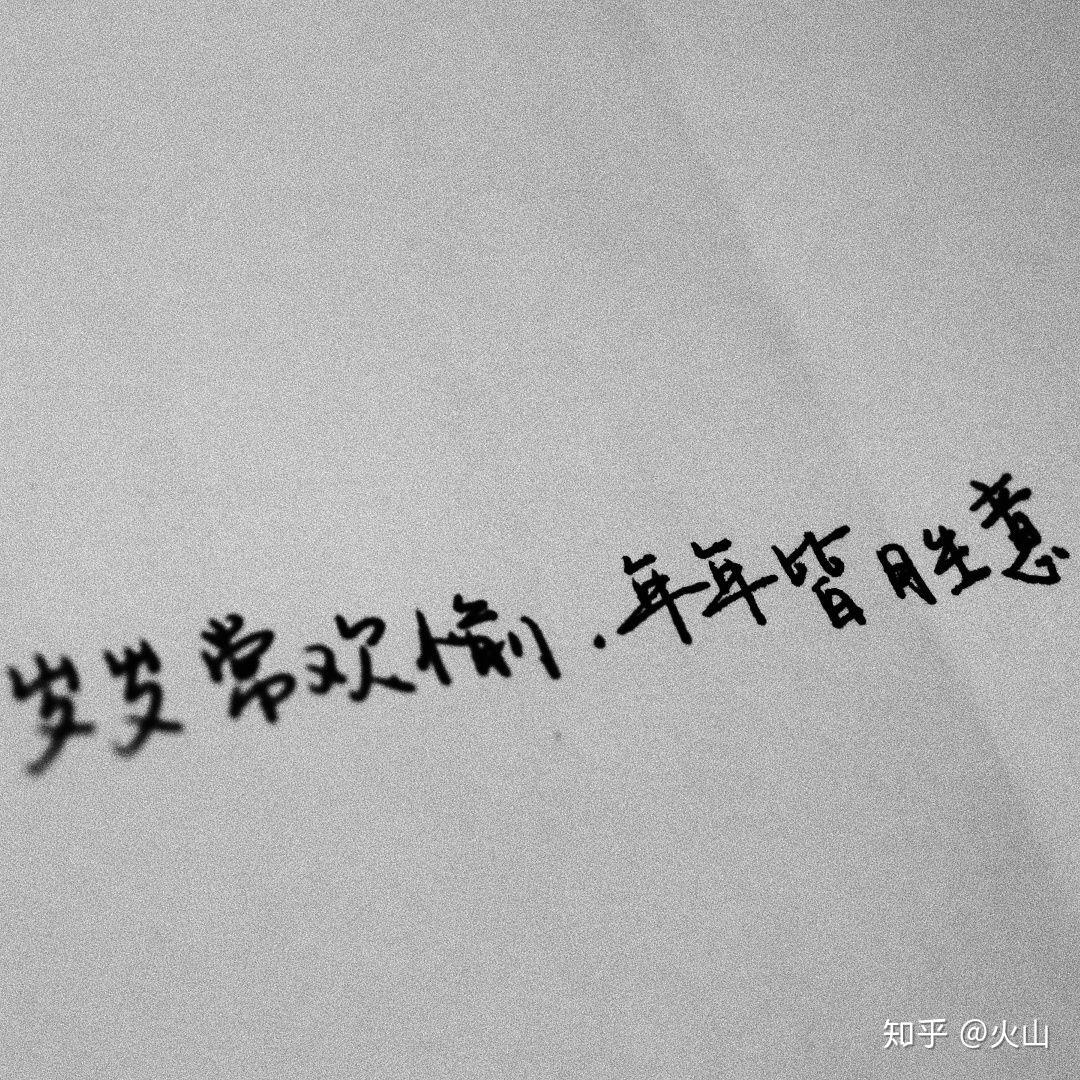 岁岁常欢愉.年年皆胜意
知乎 @火山